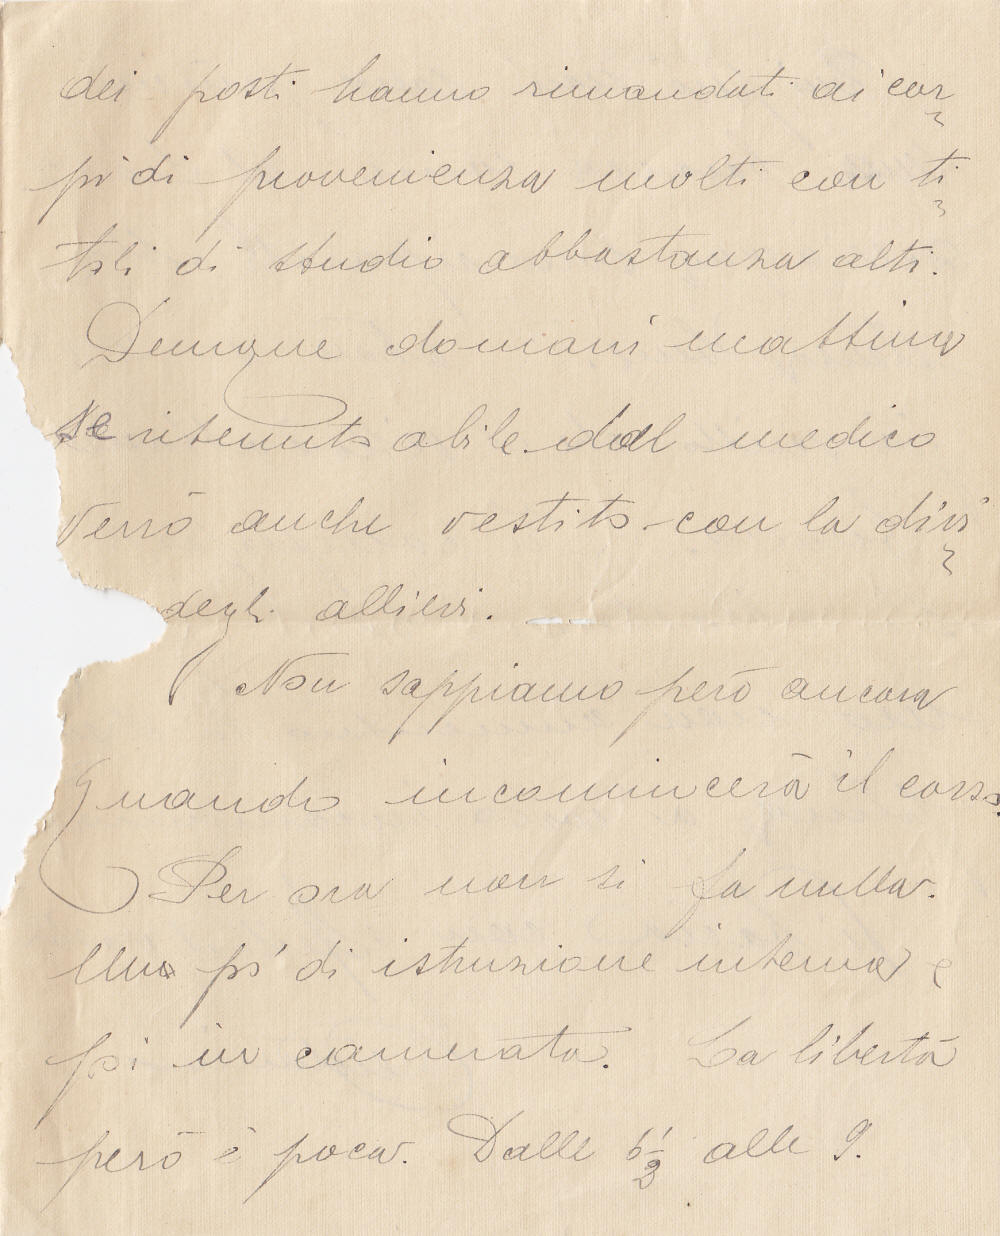 dei posti hanno rimandati ai cor
pi di provenienza molti con ti
toli di studio abbastanza alti.
Dunque domani mattina
se ritenuto abile dal medico
verrò anche vestito con la divi
degli allievi.
Non sappiamo però ancora
quando incomincerà il corso.
Per ora non si fa nulla.
Un po' di istruzione interna e
poi in camerata. La libertà
però è poca. Dalle 6½ alle 9.